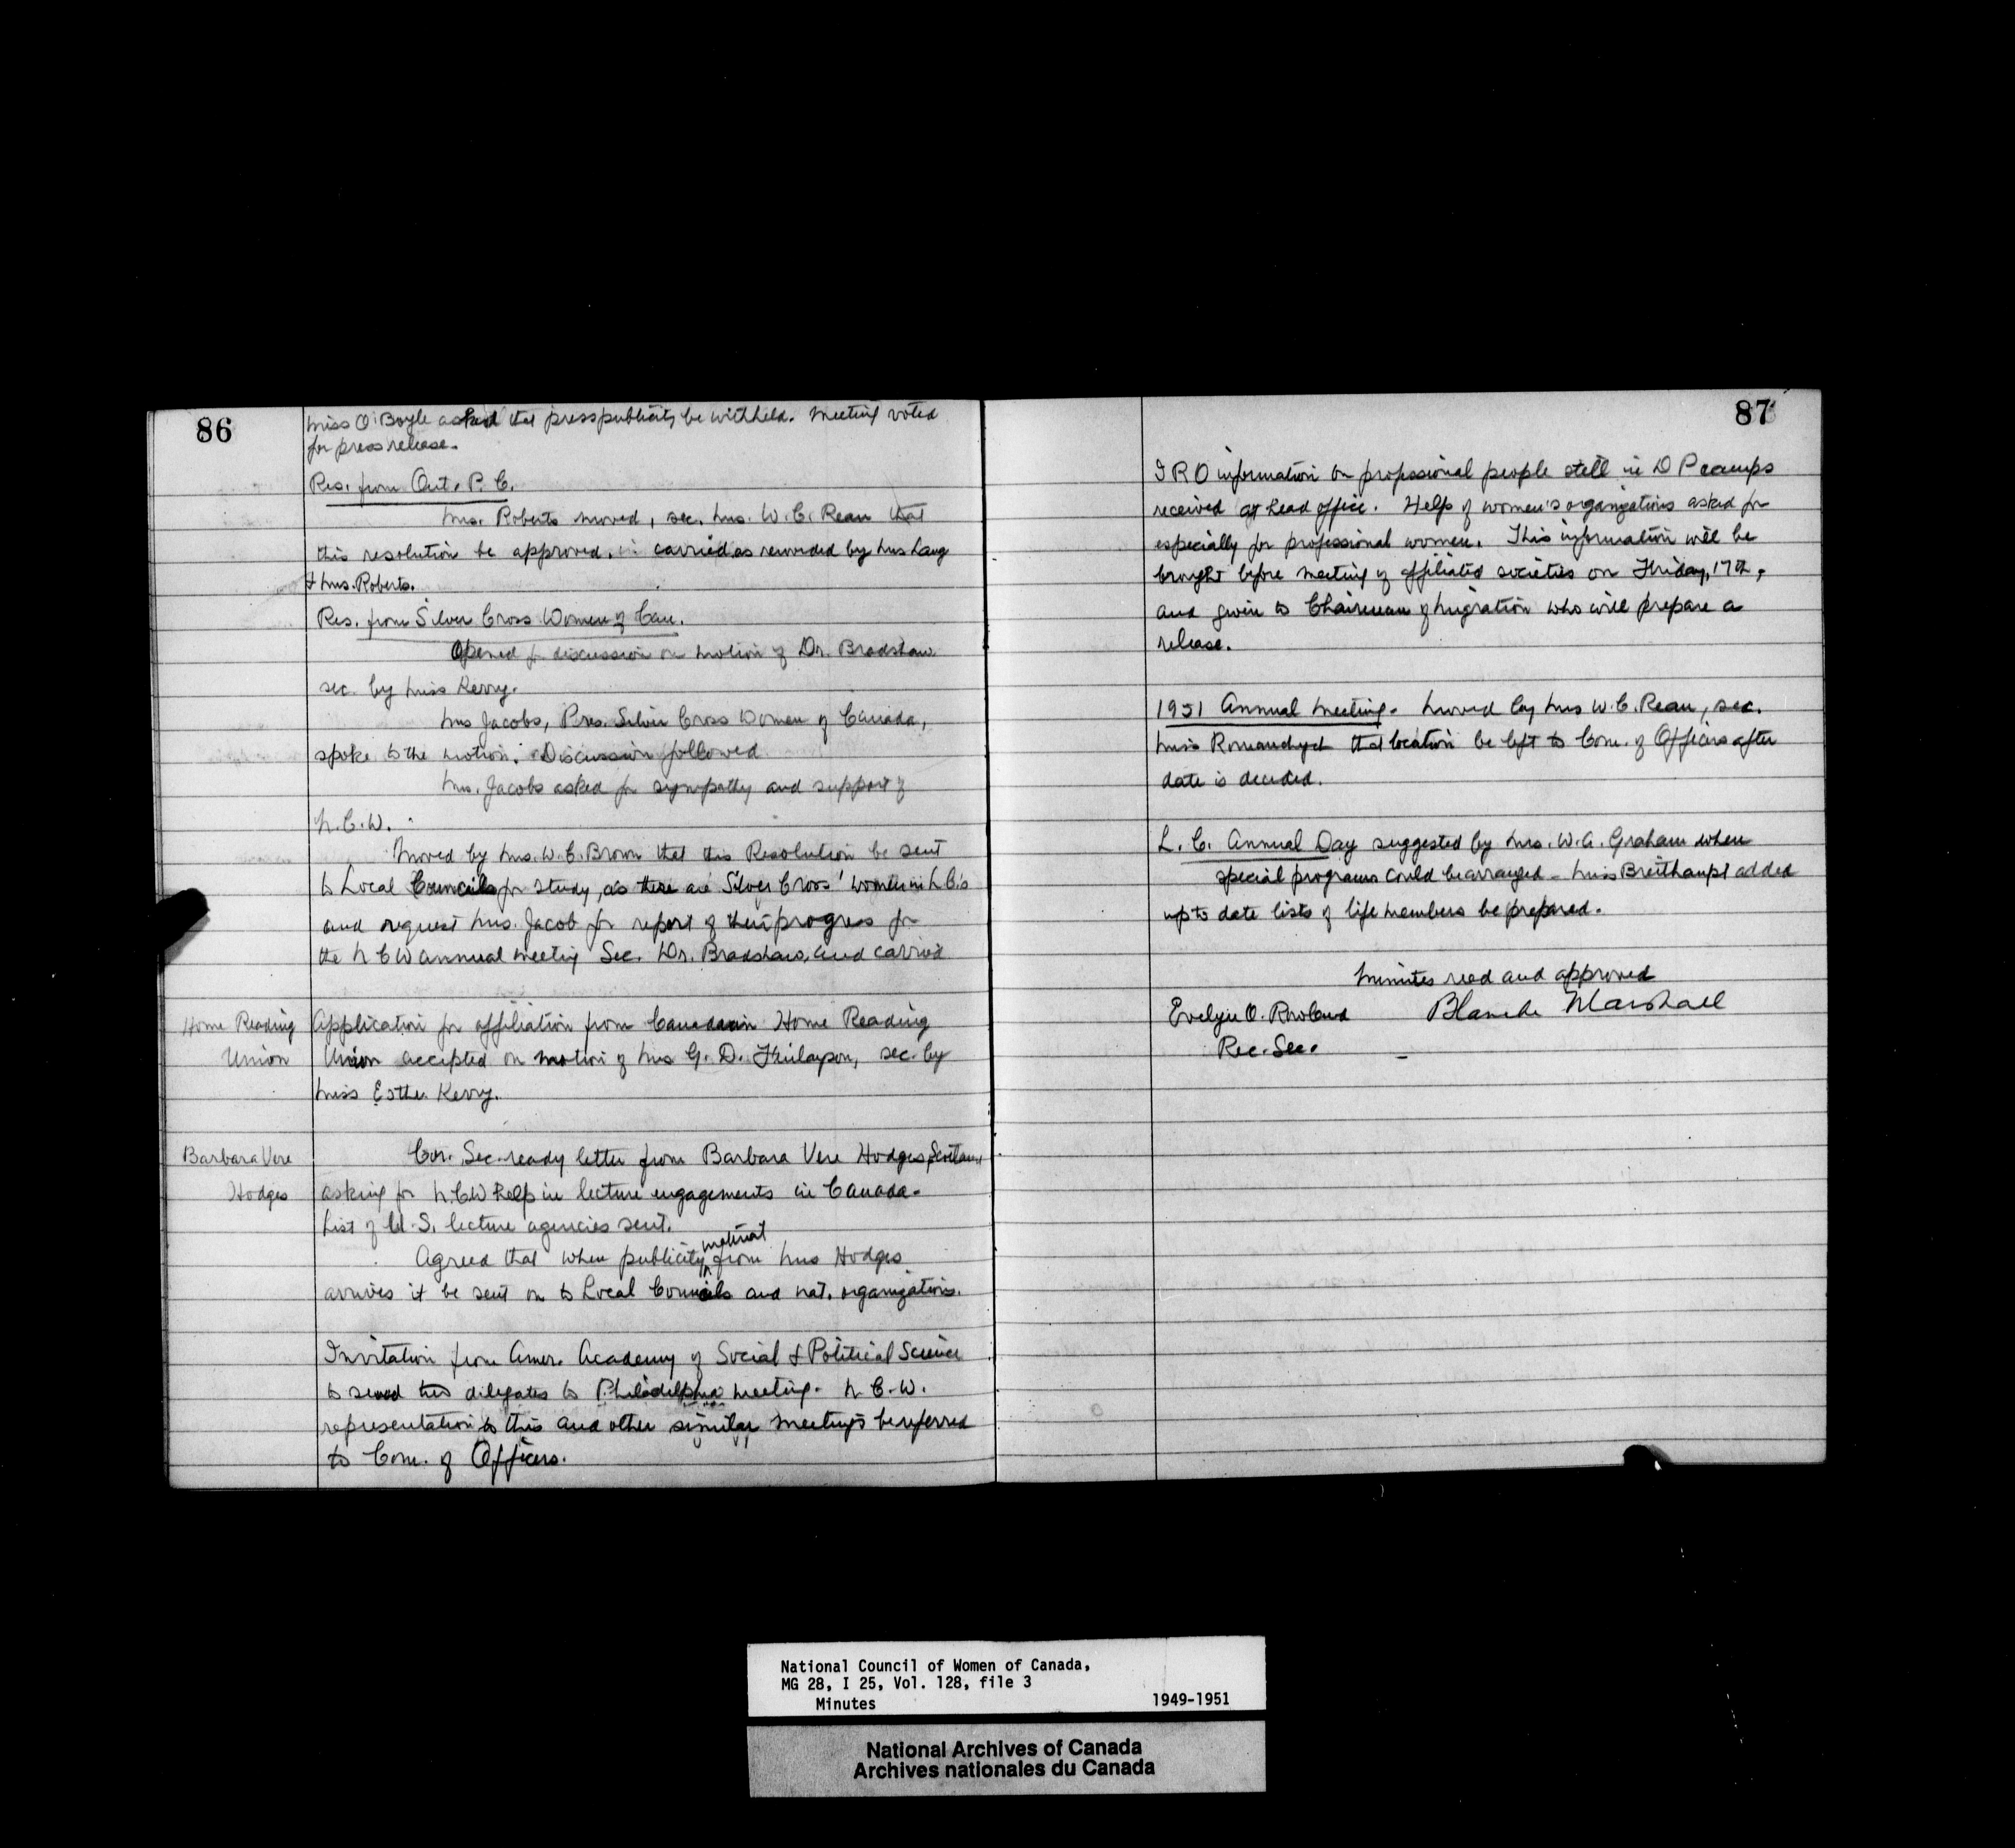 86
Miss O'Boyle asked that press publicity be withheld. Meeting voted
for press release.
Res. from Ont. P. C.
Mrs. Roberts moved, sec. Mrs. W. C. Rean that
this resolution be approved. carried as reworded by Mrs Lang
& Mrs. Roberts.
Res. from Silver Cross Women of Can.
Opened for discussion on motion of Dr. Bradshaw
sec. by Miss Kerry.
Mrs Jacobs, Pres. Silver Cross Women of Canada,
spoke to the motion. Discussion followed
Mrs. Jacobs asked for sympathy and support of
N.C.W.
Moved by Mrs. W. E. Brown that this Resolution be sent
to Local Councils for study, as there are Silver Cross' women in L C's
and request Mrs. Jacob for report of their progress for
the N C W annual meeting Sec. Dr. Bradshaw, and carried
Home Reading
Union
Application for affiliation from Canadian Home Reading
Union accepted on motion of Mrs G. D. Finlayson, sec. by
Miss Esther Kerry.
Barbara Vere
Hodges
Cor. Sec. ready letter from Barbara Vere Hodges, Scotland
asking for N.C.W help in lecture engagements in Canada.
List of U.S. lecture agencies sent.
Agreed that when publicity material from Mrs Hodges
arrives it be sent on to Local Councils and nat. organizations.
Invitation from Amer. Academy of Social & Political Science
to send two delegates to Philadelphia meeting. N.C.W.
representation to this and other similar meetings be referred
to Com. of Officers.
87
I R O information on professional people still in D P camps
received at head office. Help of women's organizations asked for
especially for professional women. This information will be
brought before meeting of affiliated societies on Friday, 17th,
and given to Chairman of Migration who will prepare a
release.
1951 Annual Meeting. Moved by Mrs W. C. Rean, sec.
Miss Romanchych that location be left to Com. of Officers after
date is decided.
L. C. Annual Day suggested by Mrs. W. A. Graham when
special programs could be arranged - Miss Breithaupt added
up to date lists of life members be prepared.
Minutes read and approved
Evelyn O. Blanche Marshall
Rec. Sec.
National Council of Women of Canada,
MG 28, I 25, Vol. 128, file 3
Minutes 1949-1951
National Archives of Canada
Archives nationales du Canada